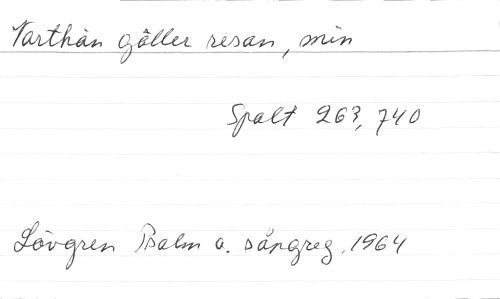 Varthän gäller resan, min
Spalt 263, 740
Lövgren Psalm o. sångreg. 1964